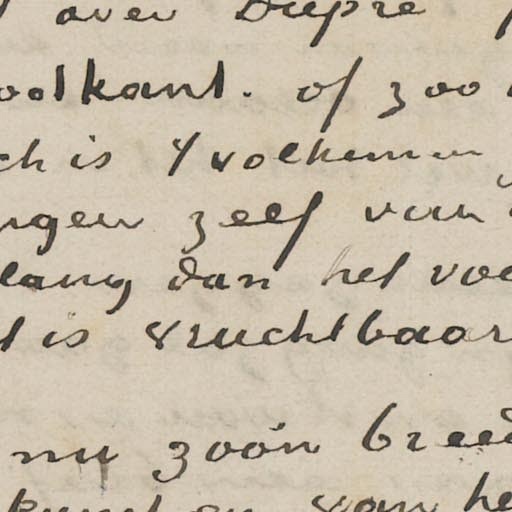 over Dupré
oolkant. of zoo
ch is 't volkomen
ngen zelf van
lang dan het voe
t is vruchtbaar
nu zoo'n breed
kunst en van he